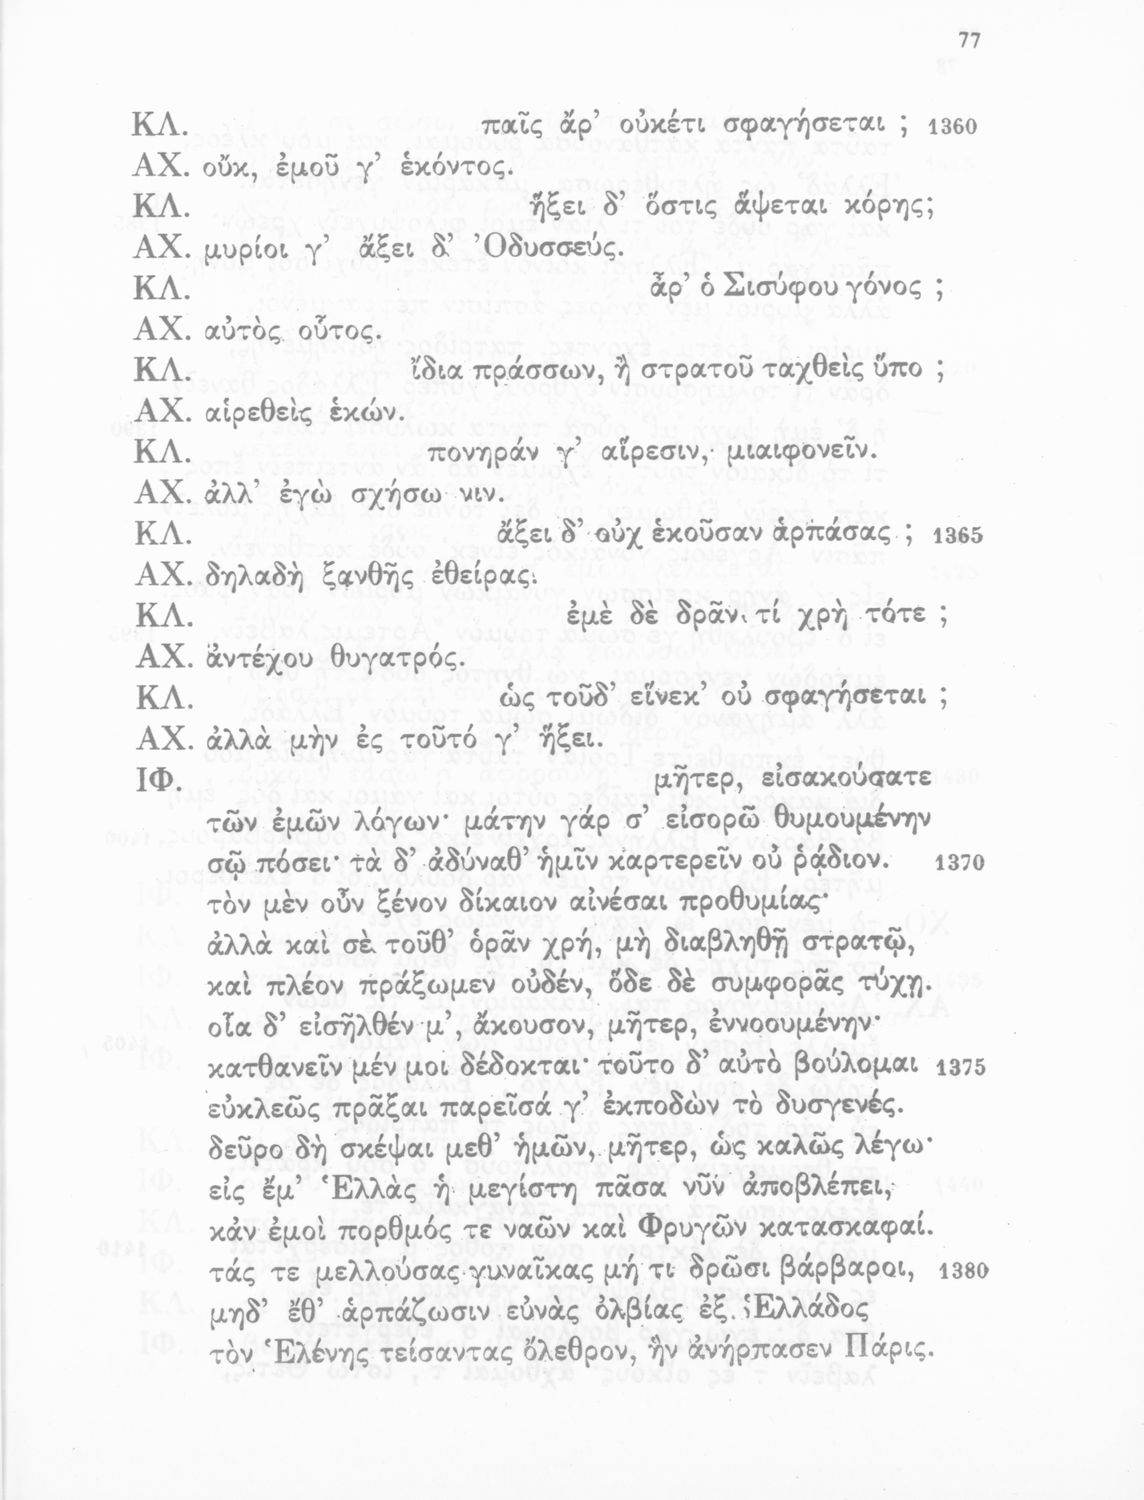 77
ΚΛ. παῖς ἄρ’ οὐκέτι σφαγήσεται ; 1360
ΑΧ. οὔκ, ἐμοῦ γ’ ἑκόντος.
ΚΛ. ἥξει δ’ ὅστις ἅψεται κόρης;
ΑΧ. μυρίοι γ’ ἄξει δ’ Ὀδυσσεύς.
ΚΛ. ἆρ’ ὁ Σισύφου γόνος ;
ΑΧ. αὐτὸς οὗτος.
ΚΛ. ἴδια πράσσων, ἢ στρατοῦ ταχθεὶς ὕπο ;
ΑΧ. αἱρεθεὶς ἑκών.
ΚΛ. πονηράν γ’ αἵρεσιν, μιαιφονεῖν.
ΑΧ. ἀλλ’ ἐγὼ σχήσω νιν.
ΚΛ. ἄξει δ’ οὐχ ἑκοῦσαν ἁρπάσας ; 1365
ΑΧ. δηλαδὴ ξανθῆς ἐθείρας.
ΚΛ. ἐμὲ δὲ δρᾶν τί χρὴ τότε ;
ΑΧ. ἀντέχου θυγατρός.
ΚΛ. ὡς τοῦδ’ εἵνεκ’ οὐ σφαγήσεται ;
ΑΧ. ἀλλὰ μὴν ἐς τοῦτό γ’ ἥξει.
ΙΦ. μῆτερ, εἰσακούσατε
τῶν ἐμῶν λόγων· μάτην γάρ σ’ εἰσορῶ θυμουμένην
σῷ πόσει· τὰ δ’ ἀδύναθ’ ἡμῖν καρτερεῖν οὐ ῥᾴδιον. 1370
τὸν μὲν οὖν ξένον δίκαιον αἰνέσαι προθυμίας·
ἀλλὰ καὶ σὲ τοῦθ’ ὁρᾶν χρή, μὴ διαβληθῇ στρατῷ,
καὶ πλέον πράξωμεν οὐδέν, ὅδε δὲ συμφορᾶς τύχῃ.
οἷα δ’ εἰσῆλθέν μ’, ἄκουσον, μῆτερ, ἐννοουμένην·
κατθανεῖν μέν μοι δέδοκται· τοῦτο δ’ αὐτὸ βούλομαι 1375
εὐκλεῶς πρᾶξαι παρεῖσά γ’ ἐκποδὼν τὸ δυσγενές.
δεῦρο δὴ σκέψαι μεθ’ ἡμῶν, μῆτερ, ὡς καλῶς λέγω·
εἰς ἔμ’ Ἑλλὰς ἡ μεγίστη πᾶσα νῦν ἀποβλέπει,
κἀν ἐμοὶ πορθμός τε ναῶν καὶ Φρυγῶν κατασκαφαί.
τάς τε μελλούσας γυναῖκας μή τι δρῶσι βάρβαροι, 1380
μηδ’ ἔθ’ ἁρπάζωσιν εὐνὰς ὀλβίας ἐξ Ἑλλάδος
τὸν Ἑλένης τείσαντας ὄλεθρον, ἣν ἀνήρπασεν Πάρις.